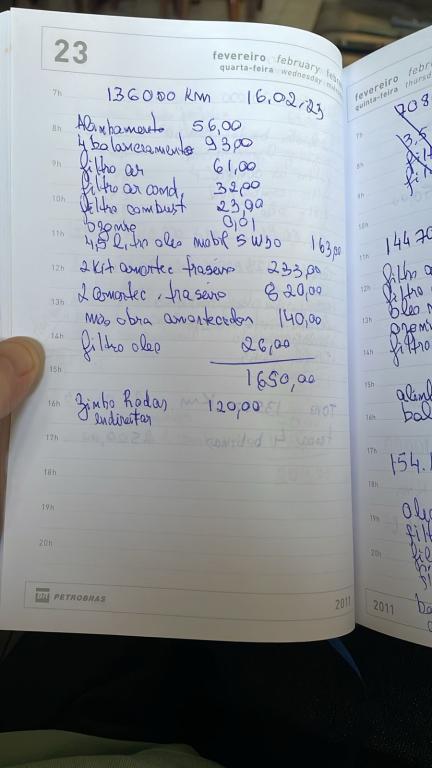 23
fevereiro february febre
quarta-feira wednesday
7h 136000 Km 16.02.23
8h Alinhamento 56,00
4 balanceamento 93,00
9h filtro ar 61,00
filtro ar cond. 32,00
10h filtro combust 23,90
ozonio 0,01
11h 4,5 litro oleo mobil 5W30 163,00
12h 2 Kit amortec traseiro 233,00
13h 2 amortec. traseiro 820,00
mão obra amortecedor 140,00
14h filtro oleo 26,00
15h 1650,00
16h Zimbo Rodas 120,00
endireitar
17h
18h
19h
20h
BR PETROBRAS
2011
fevereiro febr
quinta-feira thurs
7h 708
8h 13,5
11h 14470
12h filtro a
filtro
13h oleo m
ozonio
14h filtro
15h
16h alinh
bal
17h 154.
18h
19h oleo
filt
20h
2011